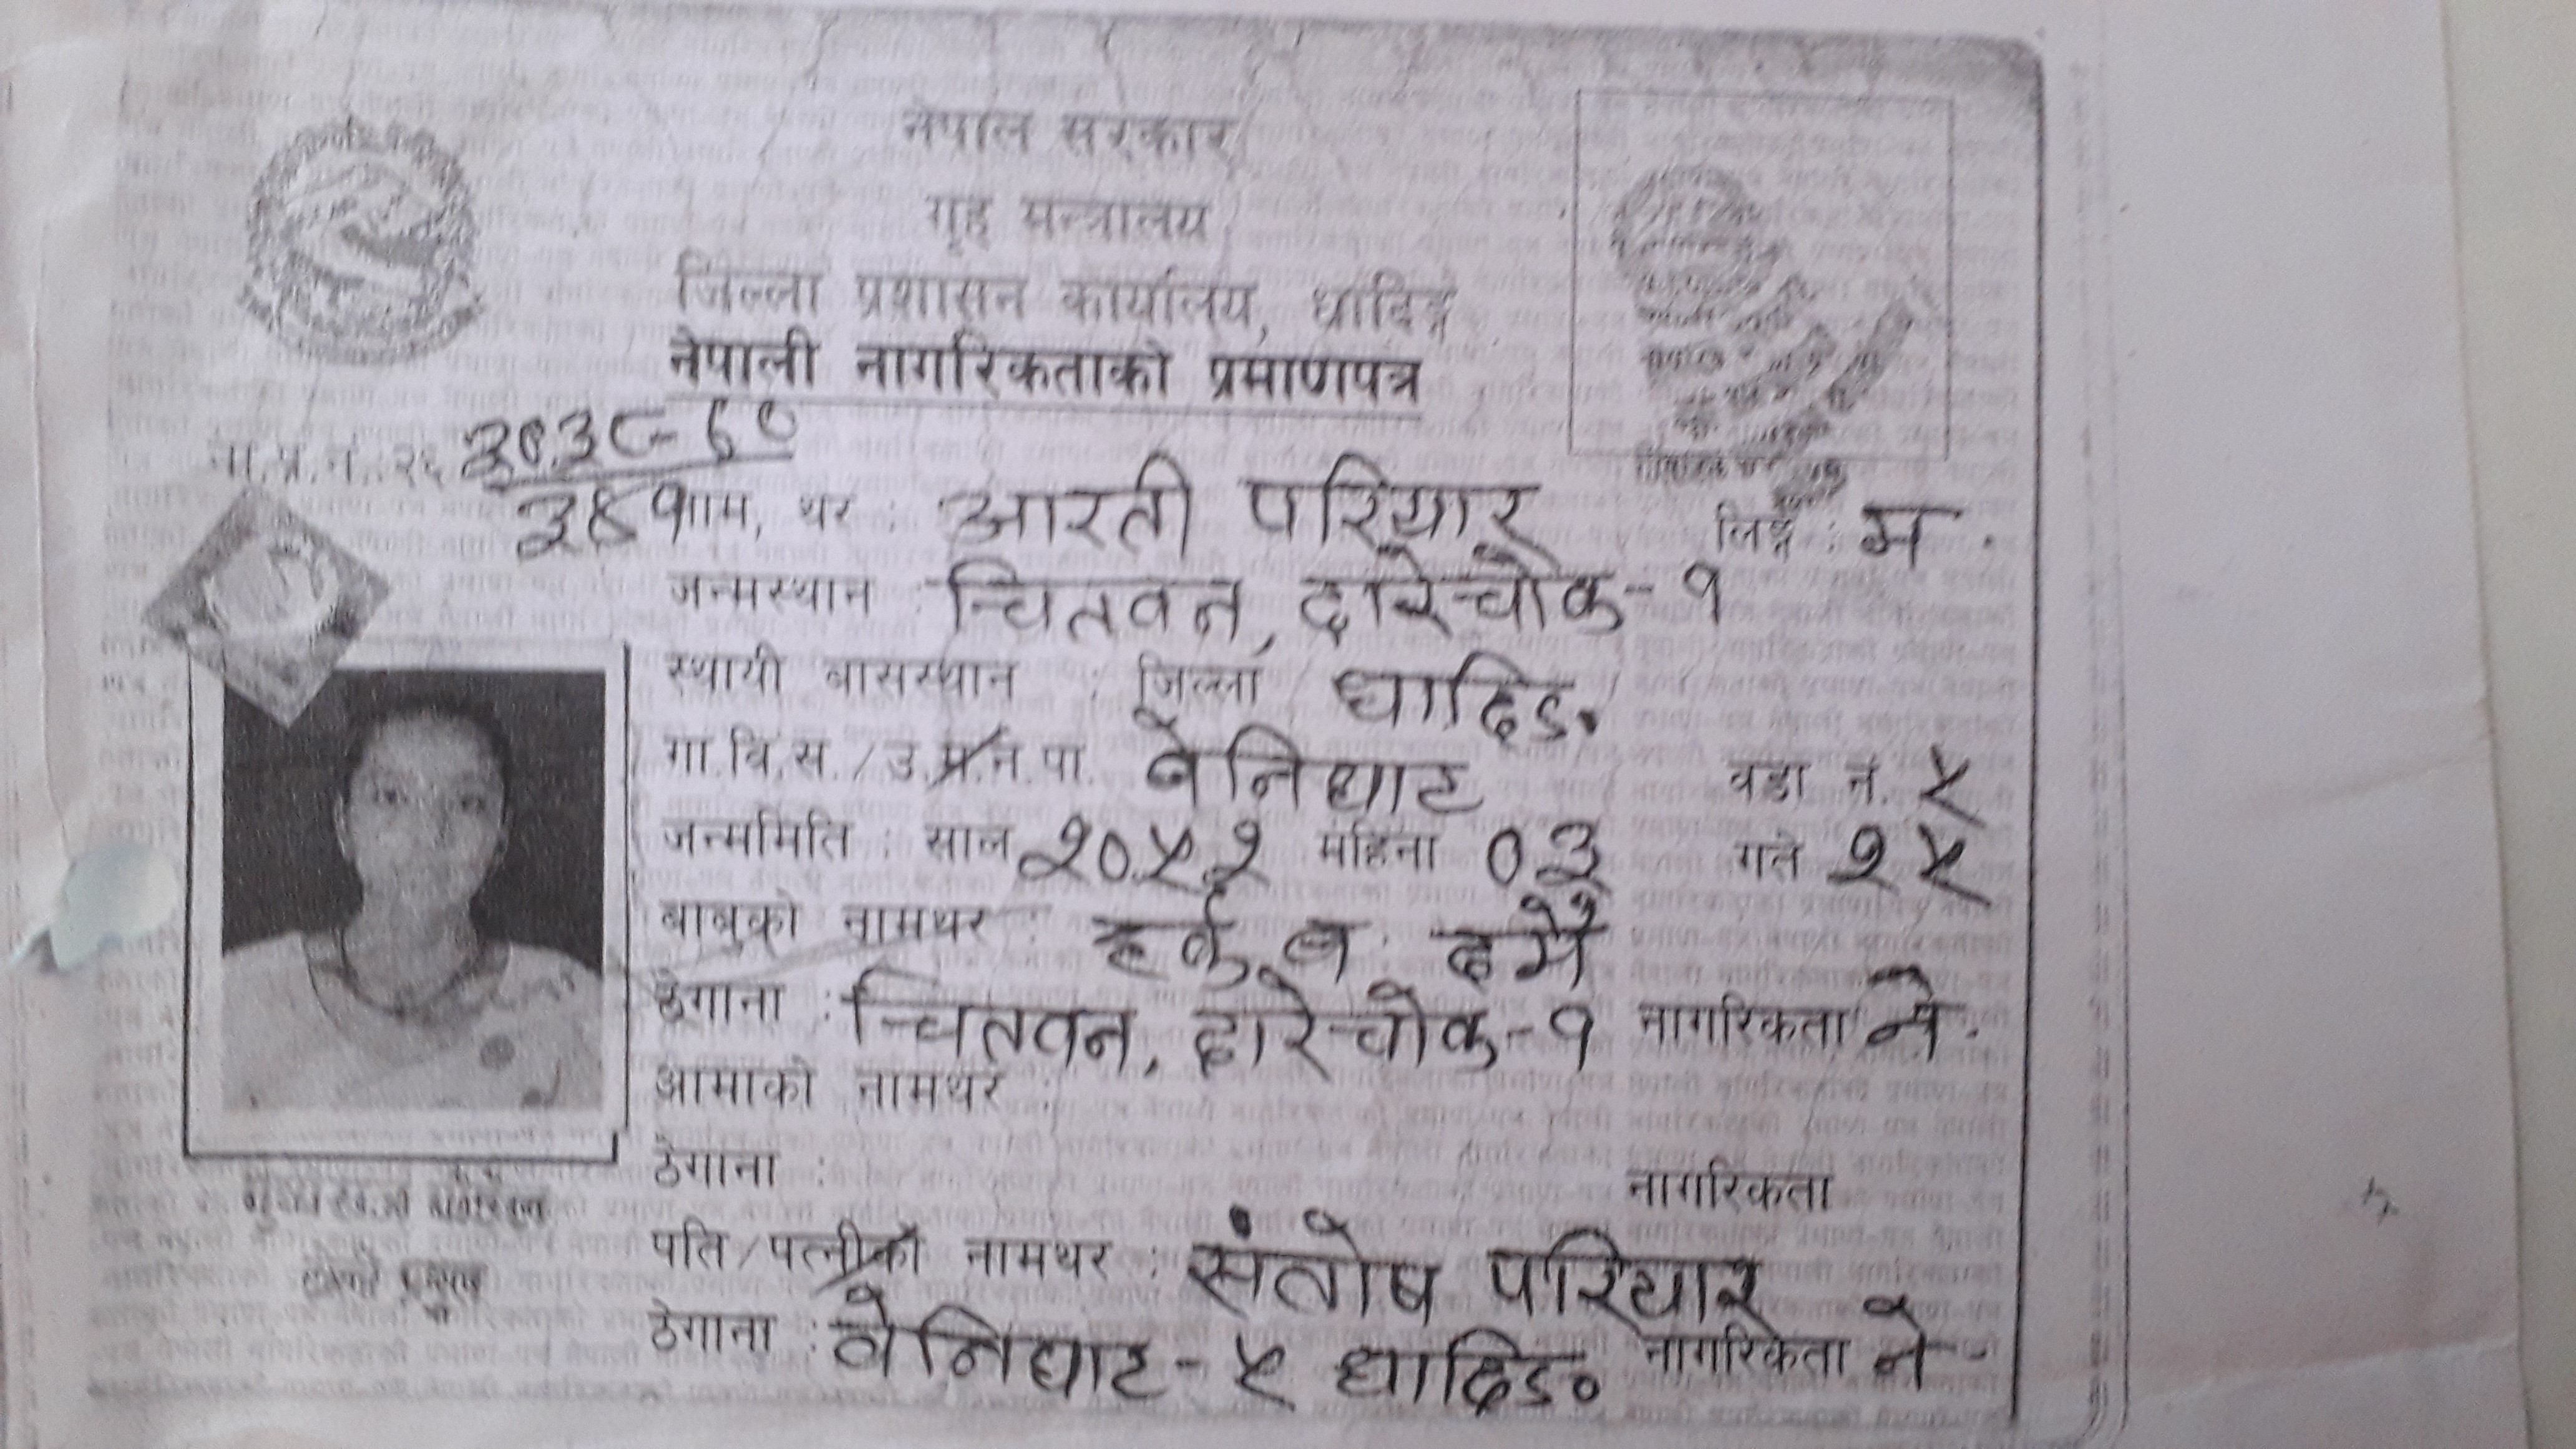 नेपाल सरकार
गृह मन्त्रालय
जिल्ला प्रशासन कार्यालय, धादिङ्ग
नेपाली नागरिकताको प्रमाणपत्र
ना.प्र.नं.:
नाम, थर : आरती परियार लिङ्ग : म.
जन्मस्थान : चितवन, दारेचोक-१
स्थायी बासस्थान : जिल्ला धादिङ.
गा.वि.स./उ.म.न.पा. बेनिघाट वडा नं. ५
जन्ममिति : साल २०५२ महिना ०३ गते १५
बाबुको नामथर : हर्क ब. दमै
ठेगाना : चितवन, दारेचोक-१ नागरिकता ने.
आमाको नामथर
ठेगाना : नागरिकता
पति/पत्नीको नामथर : संतोष परियार
ठेगाना : बेनिघाट-५ धादिङ. नागरिकता ने-